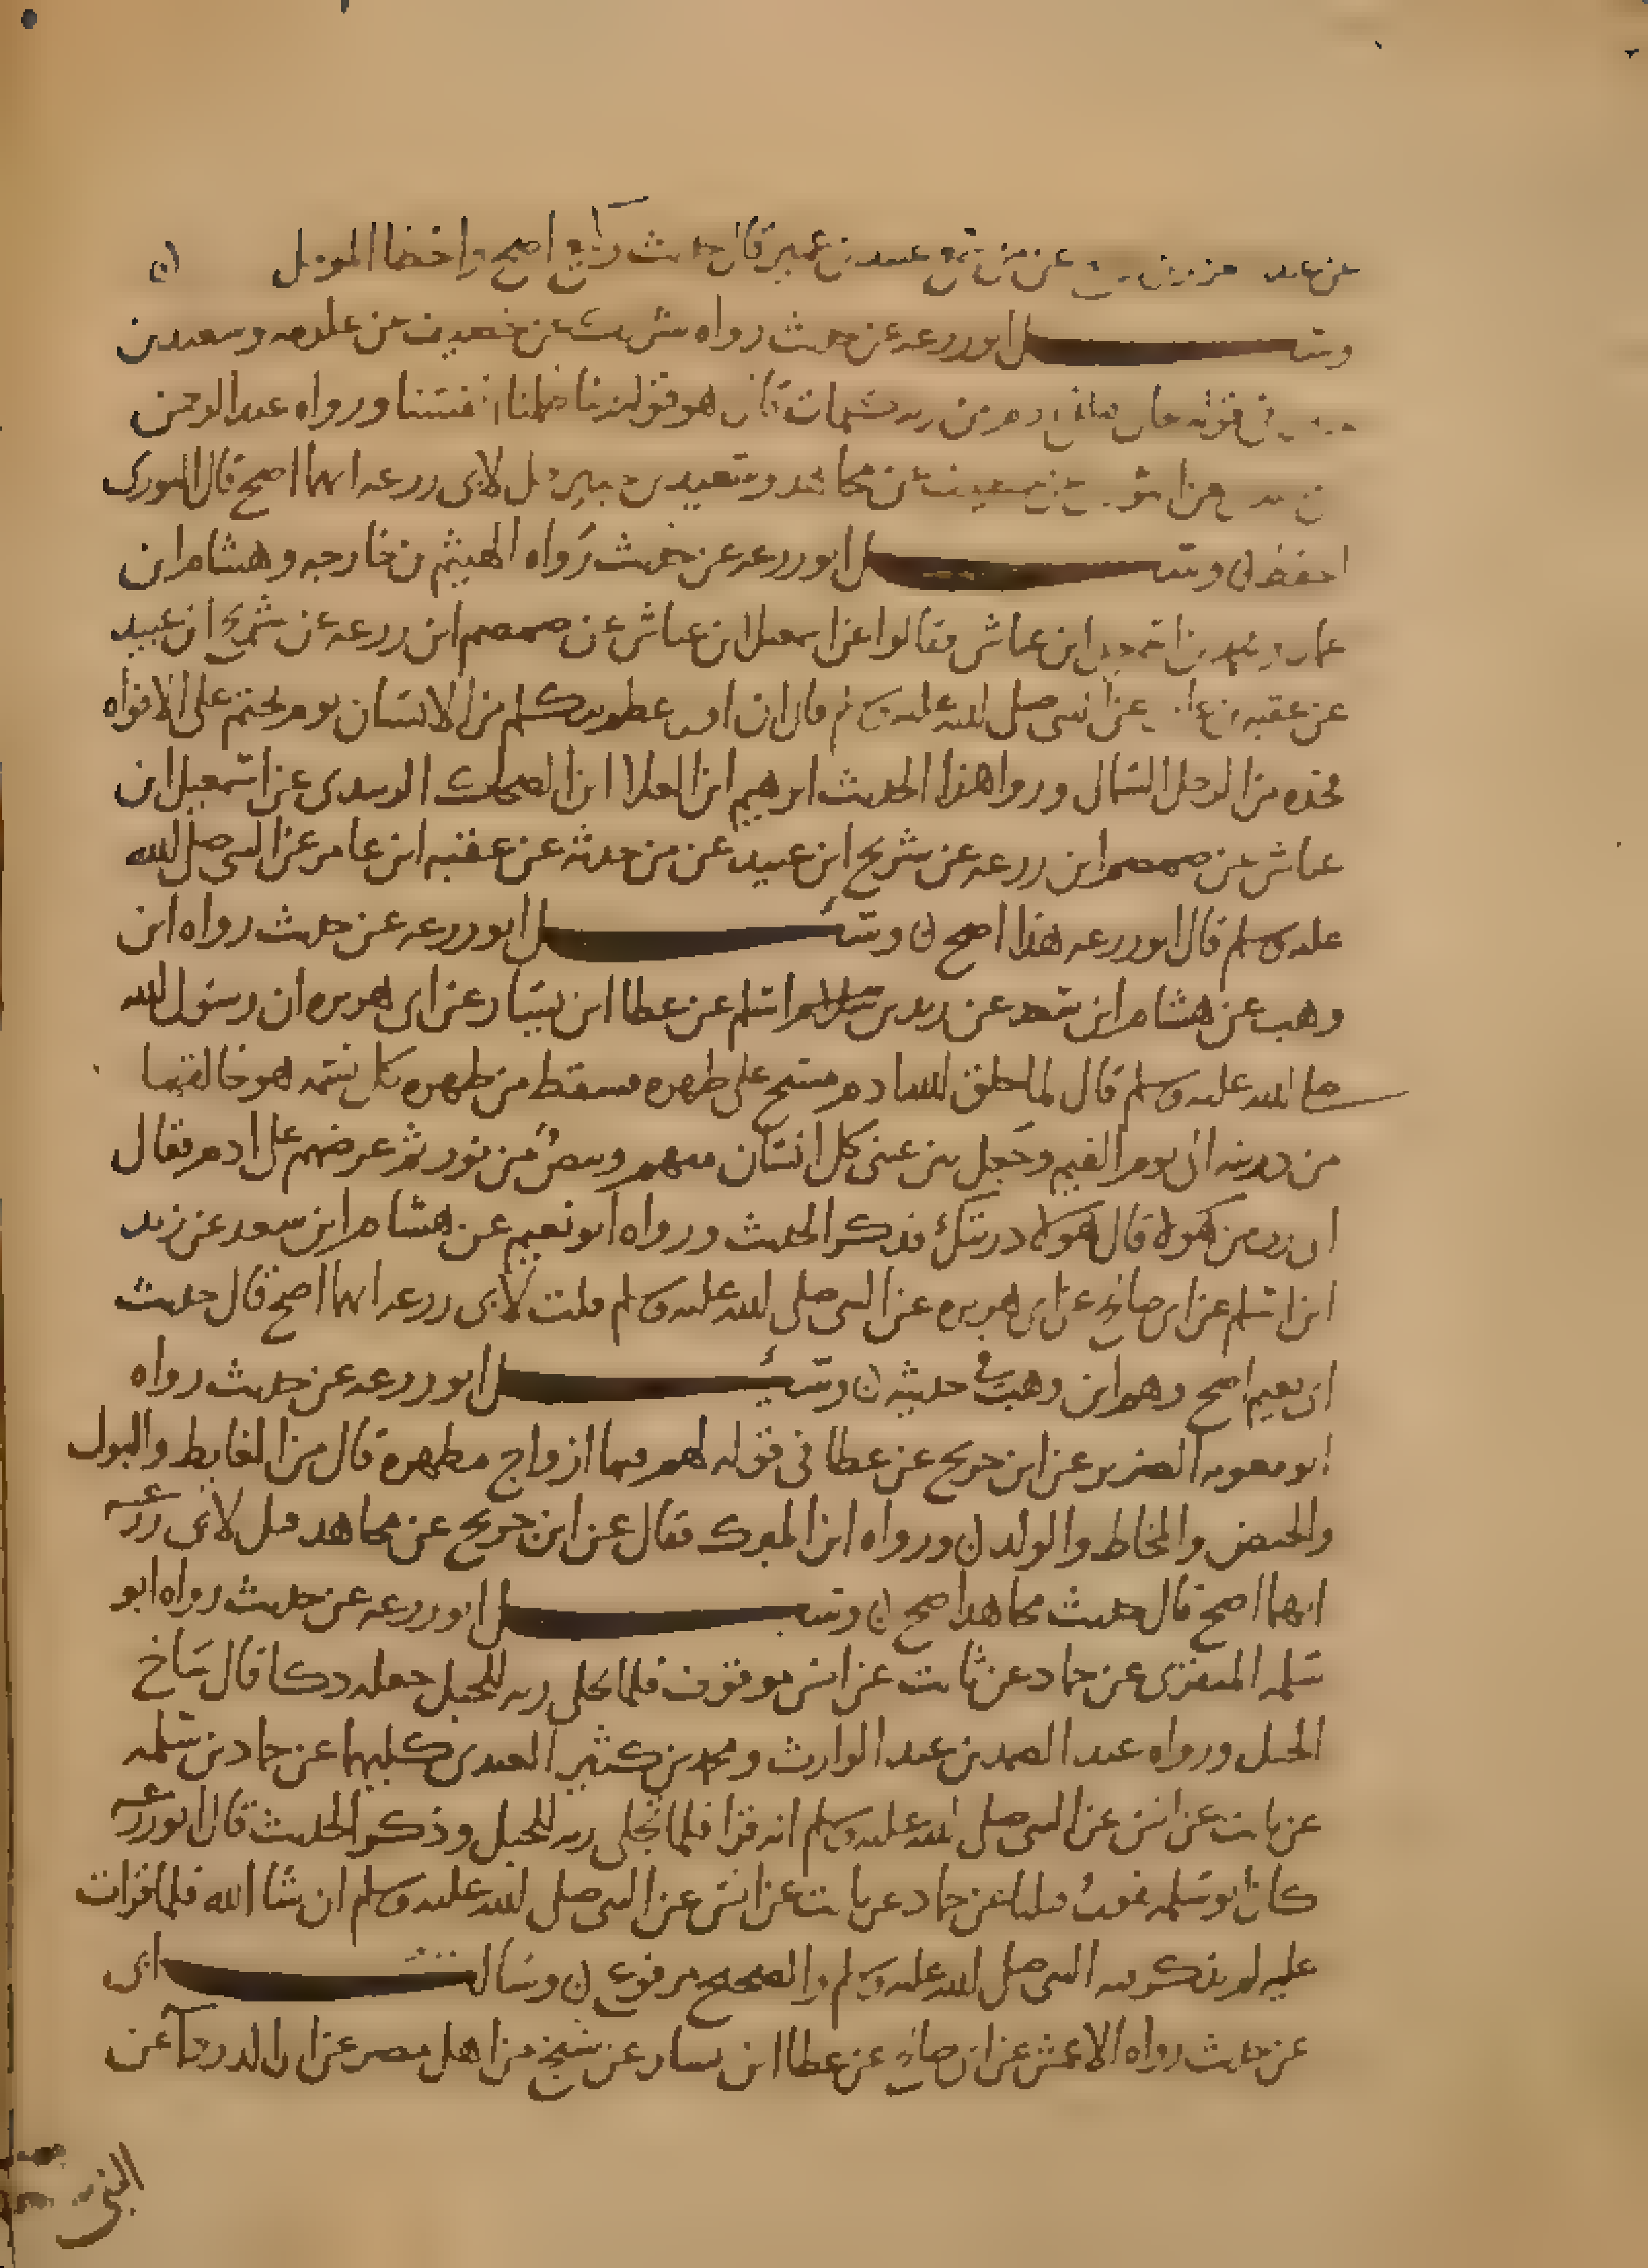 عن من سمع عبيد بن عمير قال حديث وكيع اصح واخطا المومل
وسئل ابو زرعه عن حديث رواه شريك عن خصيف عن عكرمه وسعيد بن
في قوله ادم من ربه كلمات قال هو قوله ربنا ظلمنا انفسنا ورواه عبد الرحمن
عن خصيف عن مجاهد وسعيد بن جبير قيل لابى زرعه ايهما اصح قال الثورى
احفظ ن وسئل ابو زرعه عن حديث رواه الهيثم بن خارجه وهشام ابن
عمار ابن عياش فقالوا عن اسمعيل ابن عياش عن ضمضم ابن زرعه عن شريح ابن عبيد
عن عقبه بن عن النبى صلى الله عليه وسلم قال ان اول عظم يتكلم من الانسان يوم يختم على الافواه
فخذه من الرجل الشمال وروا هذا الحديث ابرهيم ابن العلا ابن الضحاك الزبيدى عن اسمعيل ابن
عياش عن ضمضم ابن زرعه عن شريح ابن عبيد عن من حدثه عن عقبه ابن عامر عن النبى صلى الله
عليه وسلم قال ابو زرعه هذا اصح ن وسئل ابو زرعه عن حديث رواه ابن
وهب عن هشام ابن سعد عن زيد بن اسلم عن عطا ابن يسار عن ابى هريره ان رسول الله
صلى الله عليه وسلم قال لما خلق الله ادم مسح على ظهره فسقط من ظهره كل نسمه هو خالقها
من ذريته الى يوم القيمه وجعل بين عينى كل انسان منهم وبيصٌ من نور ثم عرضهم على ادم فقال
اى رب من هولا قال هولا ذريتك فذكر الحديث ورواه ابو نعيم عن هشام ابن سعد عن زيد
ابن اسلم عن ابى صالح عن ابى هريره عن النبى صلى الله عليه وسلم قلت لابى زرعه ايهما اصح قال حديث
ابى نعيم اصح وهم ابن وهب فى حديثه ن وسئل ابو زرعه عن حديث رواه
ابو معويه الضرير عن ابن جريج عن عطا فى قوله لهم فيها ازواج مطهره قال من الغايط والبول
والحيض والمخاط والولد ن ورواه ابن المبرك فقال عن ابن جريج عن مجاهد قيل لابى زرعه
ايهما اصح قال حديث مجاهد اصح ن وسئل ابو زرعه عن حديث رواه ابو
سلمه المنقرى عن حماد عن ثابت عن انس موقوف فلما تجلى ربه للجبل جعله دكا قال ساخ
الجبل ورواه عبد الصمد بن عبد الوارث ومحمد بن كثير العبدى كليهما عن حماد بن سلمه
عن ثابت عن انس عن النبى صلى الله عليه وسلم انه قرا فلما تجلى ربه للجبل وذكر الحديث قال ابو زرعه
كان ابو سلمه يقول قبلنا عن حماد عن ثابت عن انس عن النبى صلى الله عليه وسلم ان شا الله فلما قرات
عليه لم يذكر فيه النبى صلى الله عليه وسلم والصحيح مرفوع ن وسالت ابى
عن حديث رواه الاعمش عن ابى صالح عن عطا ابن يسار عن شيخ من اهل مصر عن ابى الدردآ عن
النبى